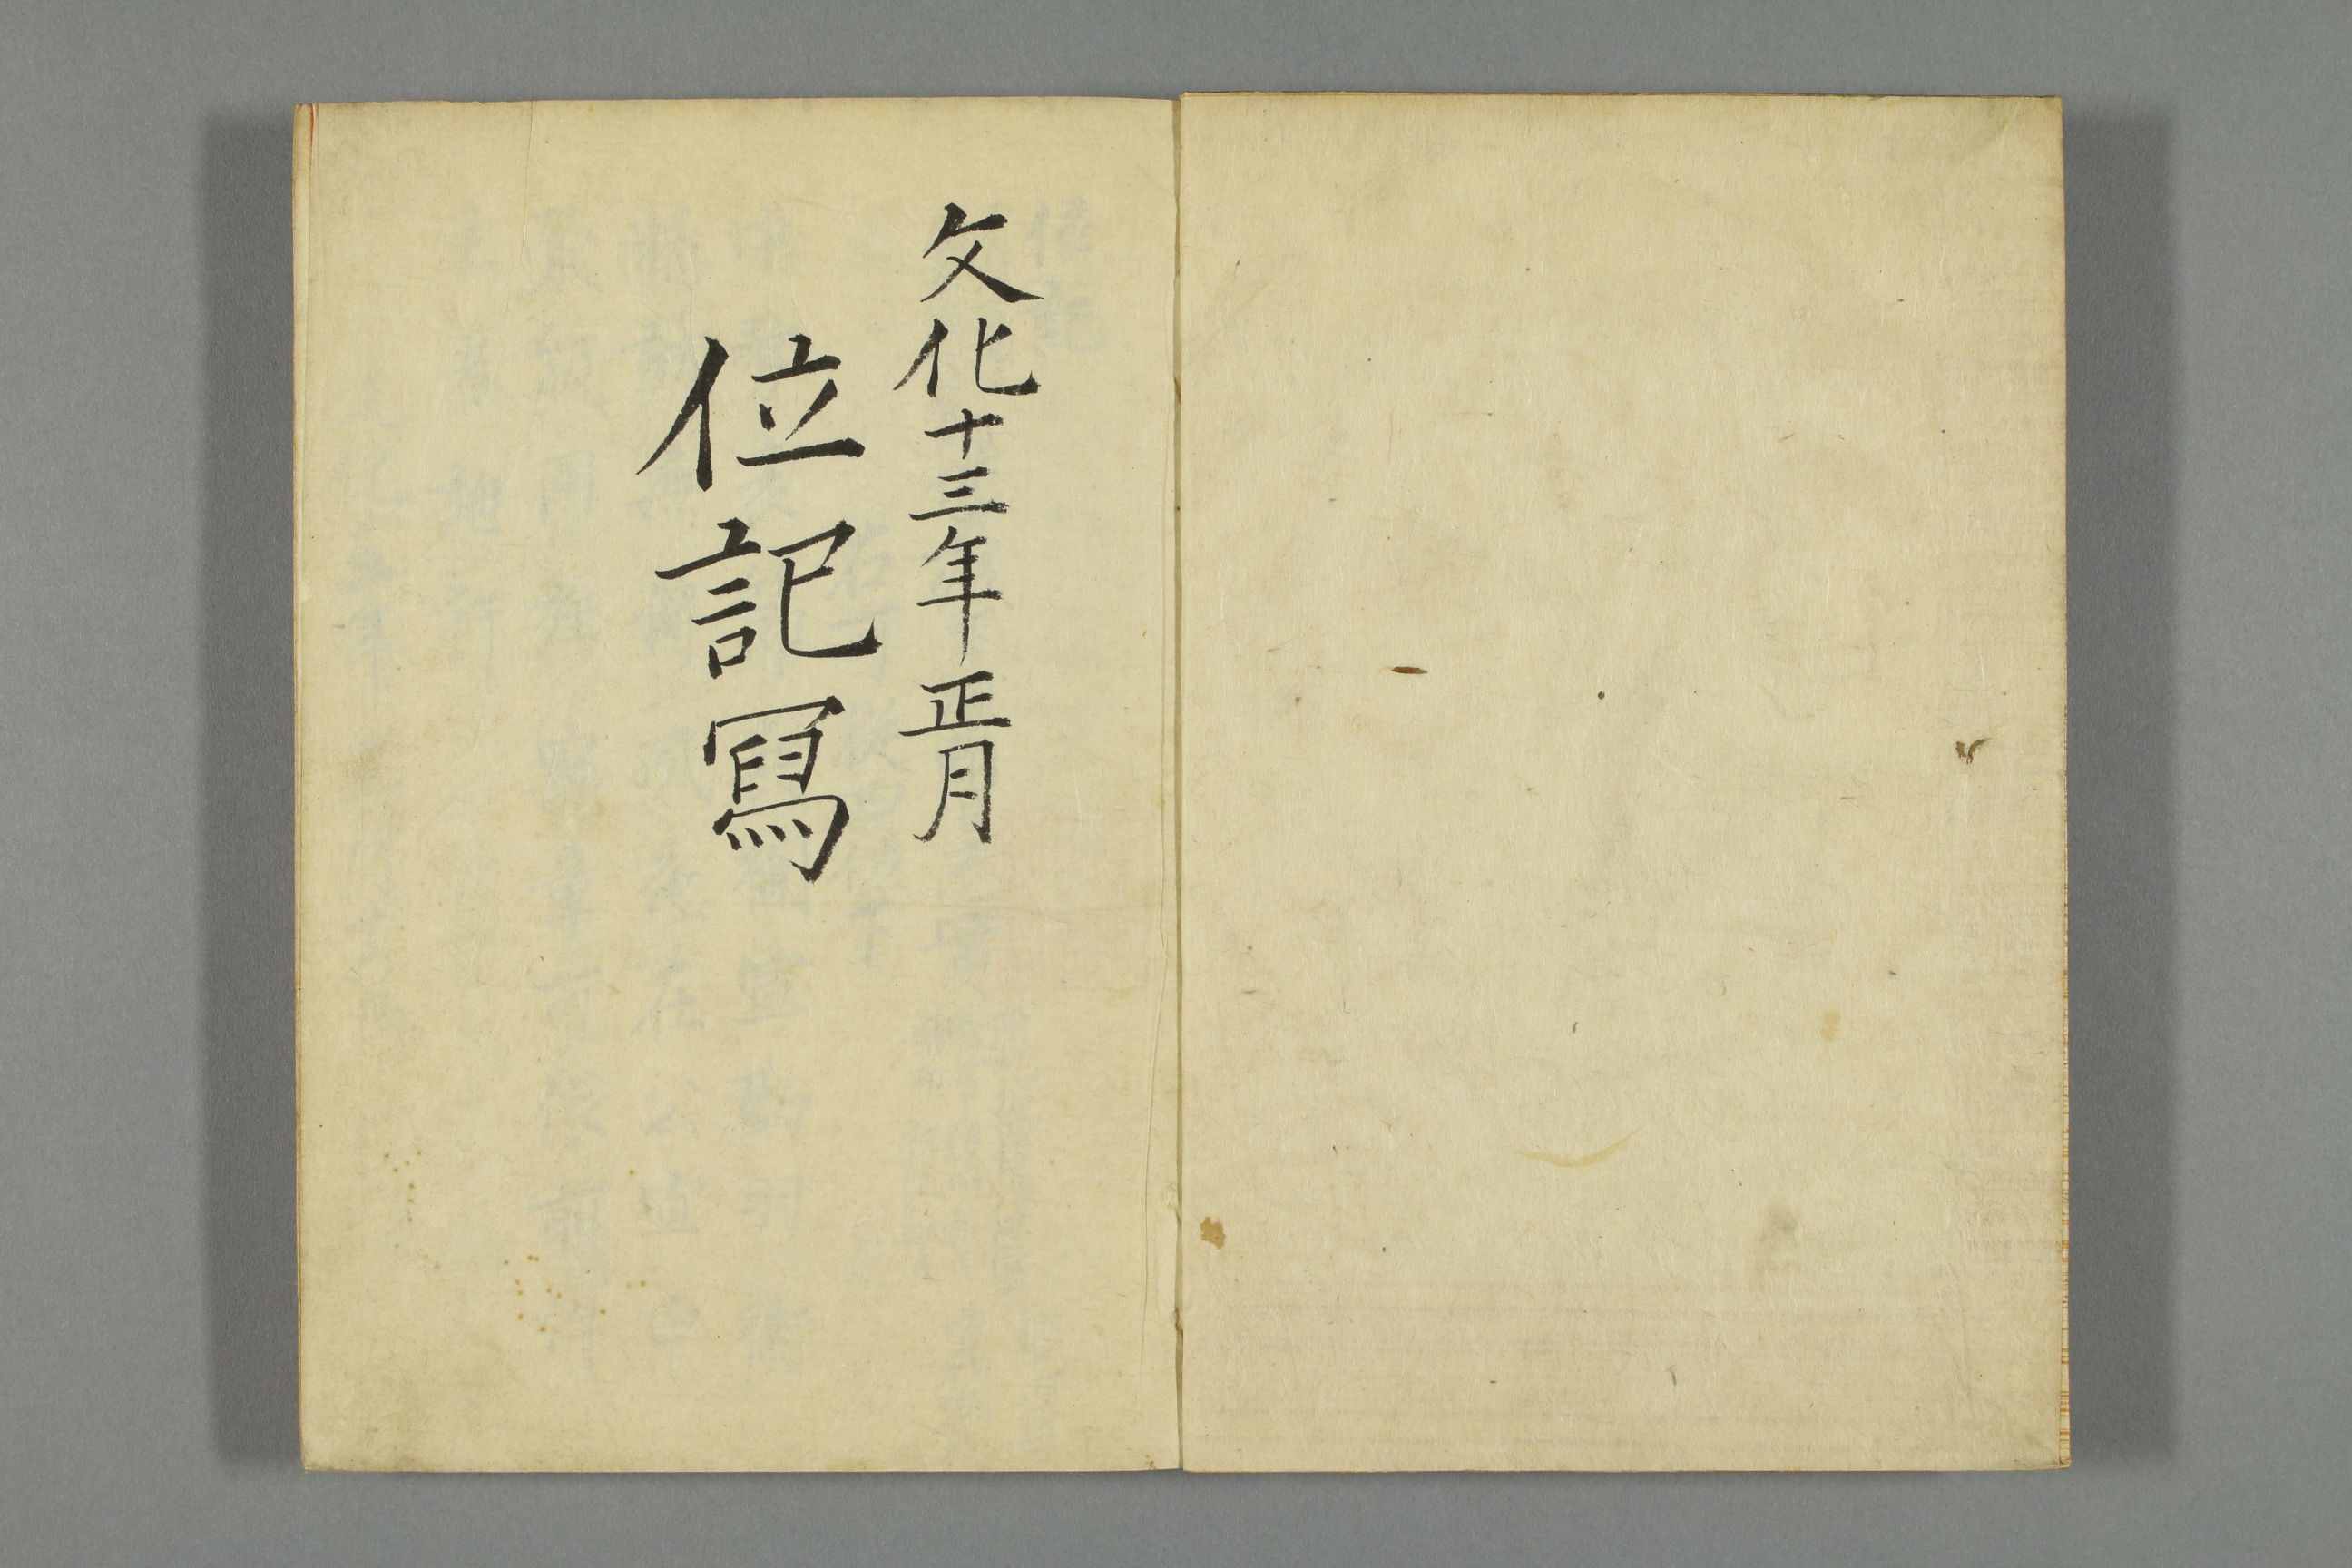 文化十三年正月
位記寫